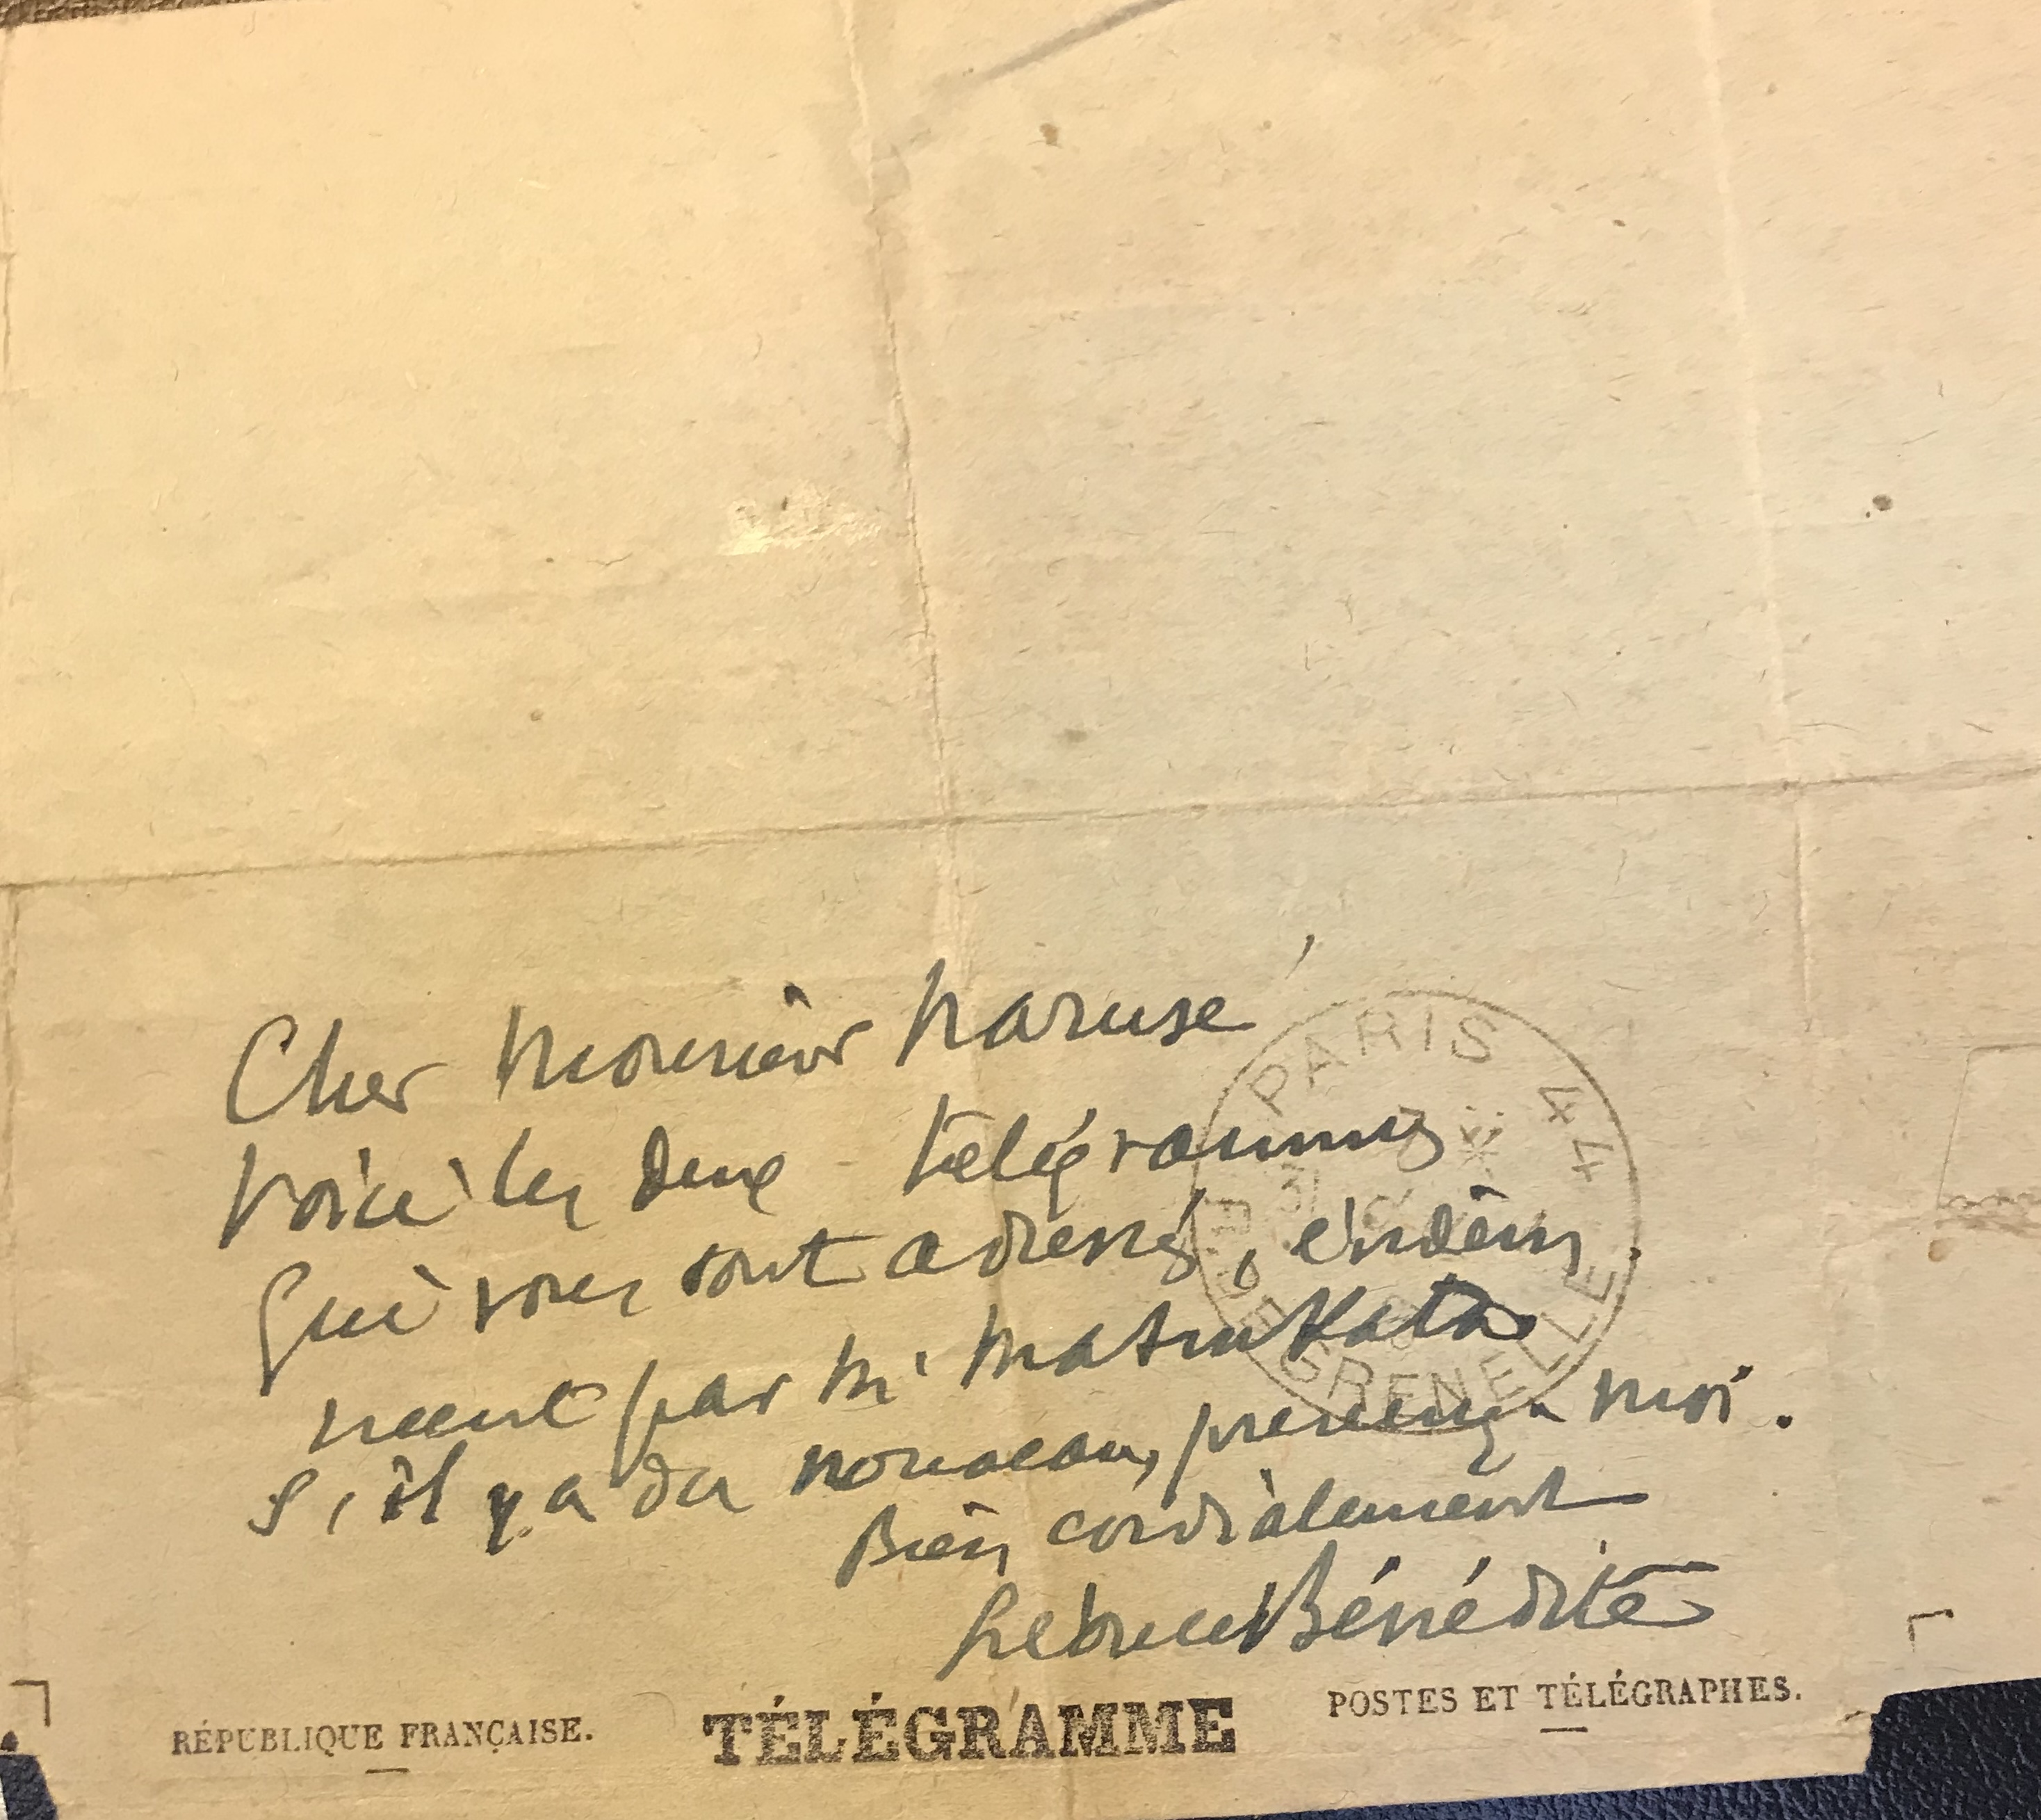 Cher Monsieur Naruse
Voici les deux télégrammes
qui vous sont adressés, évidem
ment par M. Matsukata
S'il y a du nouveau, prévenez-moi.
Bien cordialement
Bénédite
PARIS 44
GRENELLE
RÉPUBLIQUE FRANÇAISE.
TÉLÉGRAMME
POSTES ET TÉLÉGRAPHES.